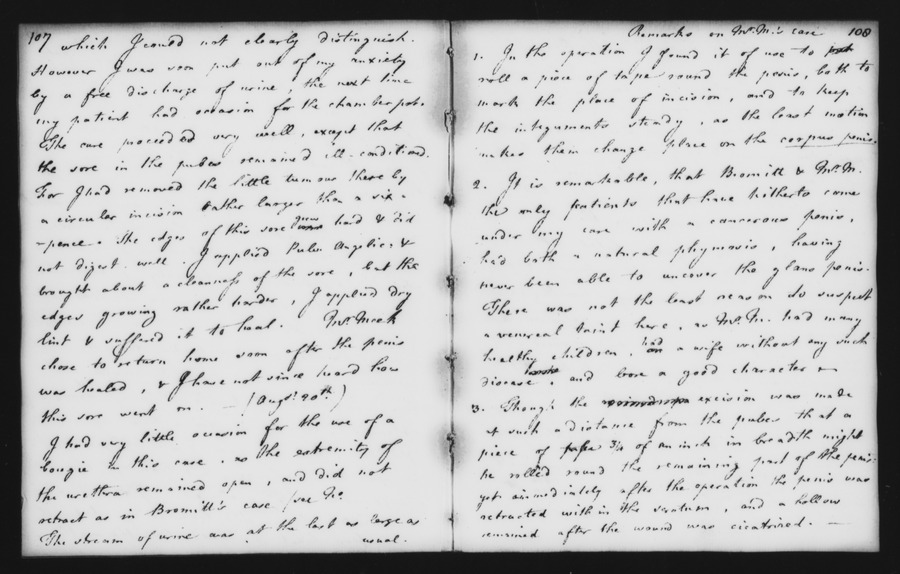 107
which I could not clearly distinguish.
However I was soon put out of my anxiety
by a free discharge of urine, the next time
my patient had occasion for the chamber pot.
The cure proceeded very well, except that
the sore in the pubes remained ill-conditioned.
For I had removed the little tumour there by
a circular incision rather larger than a six-
-pence. The edges of this sore grew hard & did
not digest well. I applied Pulv. Angelic. &
brought about a cleanness of the sore, but the
edges growing rather harder, I applied dry
lint & suffered it to heal. Mr. Meek
chose to return home soon after the penis
was healed, & I have not since heard how
this sore went on. — (Augst. 20th)
I had very little occasion for the use of a
bougie in this case, as the extremity of
the urethra remained open, and did not
retract as in Bromitt's case (see No.
The stream of urine was at the last as large as
usual.
Remarks on Mr. M.'s case 108
1. In the operation I found it of use to
roll a piece of tape round the penis, both to
mark the place of incision, and to keep
the integuments steady, as the least motion
makes them change place on the corpus penis.
2. It is remarkable, that Bromitt & Mr. M.
the only patients that have hitherto come
under my care with a cancerous penis,
had both a natural phymosis, having
never been able to uncover the glans penis.
There was not the least reason to suspect
a venereal taint here, as Mr. M. had many
healthy children, had a wife without any such
disease, and bore a good character
3. Though the excision was made
at such a distance from the pubes that a
piece of tape 3/4 of an inch in breadth might
be rolled round the remaining part of the penis,
yet immediately after the operation the penis was
retracted within the scrotum, and a hollow
remained after the wound was cicatrized. —